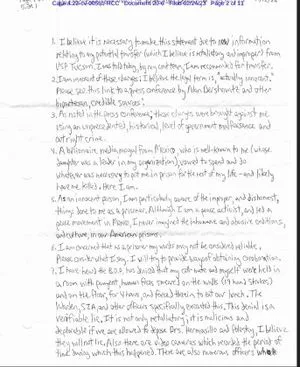 Case 4:22-cv-00592-RCC Document 20-6 Filed 02/24/23 Page 2 of 11
1. I believe it is necessary to make this statement due to new information
relating to my potential transfer (which I believe is retaliatory and improper) from
USP Tucson. I was told, by my unit team, I am recommended for transfer.
2. I am innocent of these charges; I believe the legal term is, "actually innocent."
Please see this link to a press conference by Alan Dershowitz and other
bipartisan, credible sources:
3. As noted in the press conference, these charges were brought against me
using an unprecedented, historical level of government malfeasance and
outright crime.
4. A billionaire media mogul from Mexico, who is well-known to me (whose
daughter was a leader in my organization), vowed to spend and do
whatever was necessary to put me in prison for the rest of my life – and likely
have me killed. Here I am.
5. As an innocent person, I am particularly aware of the improper, and dishonest,
things done to me as a prisoner. Although I am a peace activist, and led a
peace movement in Mexico, I never imagined the inhumane and abusive conditions,
and culture, in our American prisons.
6. I am concerned that as a prisoner my words may not be considered reliable.
Please consider what I say. I will try to provide ways of obtaining corroboration.
7. I have heard the B.O.P. has denied that my cell-mate and myself were held in
a room with pungent, human feces smeared on the walls (it had streaks)
and on the floor, for 4 hours, and forced therein to eat our lunch. The
Warden, SIA, and other officers specifically executed this. This denial is a
verifiable lie. It is not only retaliatory; it is malicious and
deplorable. If we are allowed to depose Drs. Hermosillo and Feloshy, I believe
they will not lie. Also there are video cameras which recorded the period of
time during which this happened. There are also numerous officers who